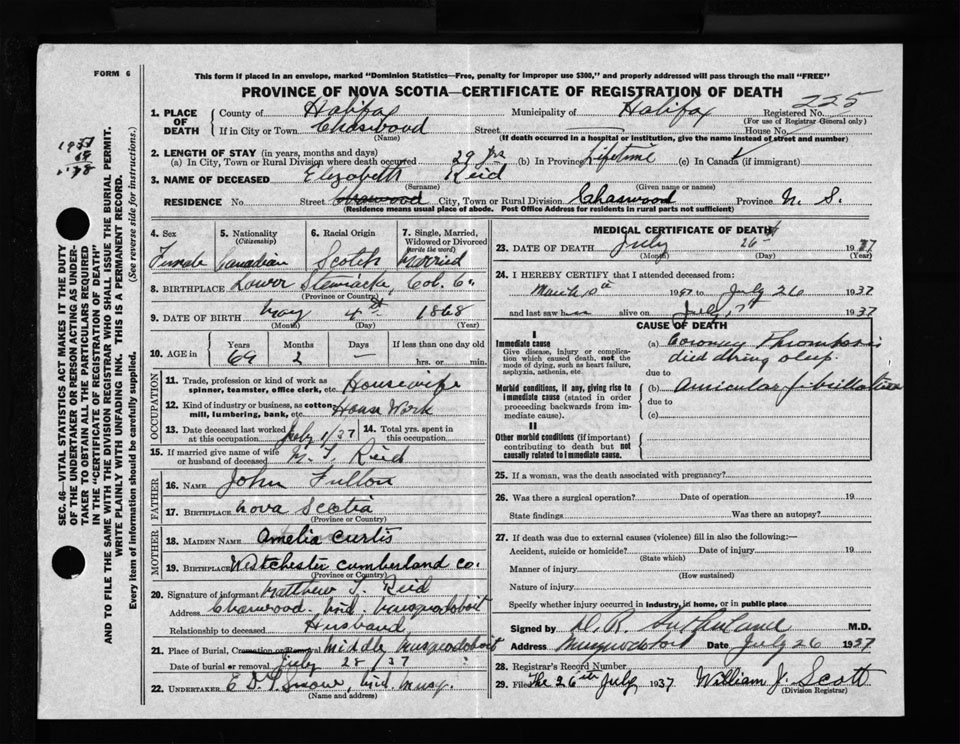 FORM 6
This form if placed in an envelope, marked "Dominion Statistics—Free, penalty for improper use $300," and properly addressed will pass through the mail "FREE"
PROVINCE OF NOVA SCOTIA—CERTIFICATE OF REGISTRATION OF DEATH
225
1. PLACE OF DEATH County of Halifax Municipality of Halifax Registered No.
(For use of Registrar General only)
If in City or Town Chaswood Street — House No.
(Name) (If death occurred in a hospital or institution, give the name instead of street and number)
2. LENGTH OF STAY (in years, months and days)
(a) In City, Town or Rural Division where death occurred 29 yrs (b) In Province Lifetime (c) In Canada (if immigrant)
3. NAME OF DECEASED Elizabeth Reid
(Surname) (Given name or names)
RESIDENCE No. Street Chaswood City, Town or Rural Division Chaswood Province N. S.
(Residence means usual place of abode. Post Office Address for residents in rural parts not sufficient)
4. Sex 5. Nationality (Citizenship) 6. Racial Origin 7. Single, Married, Widowed or Divorced (write the word)
Female Canadian Scotch Married
8. BIRTHPLACE Lower Stewiacke, Col. Co.
(Province or Country)
9. DATE OF BIRTH May 4th 1868
(Month) (Day) (Year)
10. AGE in Years Months Days If less than one day
69 2 — hrs. or min.
OCCUPATION
11. Trade, profession or kind of work as spinner, teamster, office clerk, etc. Housewife
12. Kind of industry or business, as cotton mill, lumbering, bank, etc. House Work
13. Date deceased last worked at this occupation July 1/37 14. Total yrs. spent in this occupation
15. If married give name of wife or husband of deceased M. T. Reid
FATHER
16. NAME John Fulton
17. BIRTHPLACE Nova Scotia
(Province or Country)
MOTHER
18. MAIDEN NAME Amelia Curtis
19. BIRTHPLACE Westchester Cumberland Co.
(Province or Country)
20. Signature of informant Matthew T. Reid
Address Chaswood, Mid. Musquodoboit
Relationship to deceased Husband
21. Place of Burial, Cremation or Removal Middle Musquodoboit
Date of burial or removal July 28/37
22. UNDERTAKER Mid. Musq.
(Name and address)
MEDICAL CERTIFICATE OF DEATH
23. DATE OF DEATH July 26th 1937
(Month) (Day) (Year)
24. I HEREBY CERTIFY that I attended deceased from:
March 1937 to July 26 1937
and last saw her alive on July 1937
CAUSE OF DEATH
I
Immediate cause
Give disease, injury or complication which caused death, not the mode of dying, such as heart failure, asphyxia, asthenia, etc.
(a) Coronary Thrombosis
died during sleep
due to
Morbid conditions, if any, giving rise to immediate cause (stated in order proceeding backwards from immediate cause).
(b) Auricular fibrillation
due to
(c)
II
Other morbid conditions (if important) contributing to death but not causally related to immediate cause.
25. If a woman, was the death associated with pregnancy?
26. Was there a surgical operation? Date of operation 19
State findings Was there an autopsy?
27. If death was due to external causes (violence) fill in also the following:—
Accident, suicide or homicide? Date of injury 19
(State which)
Manner of injury
(How sustained)
Nature of injury
Specify whether injury occurred in industry, in home, or in public place
Signed by D. R. Sutherland M.D.
Address Musquodoboit Date July 26 1937
28. Registrar's Record Number
29. Filed The 26th July 1937 William J. Scott
(Division Registrar)
SEC. 46—VITAL STATISTICS ACT MAKES IT THE DUTY
OF THE UNDERTAKER OR PERSON ACTING AS UNDER-
TAKER TO OBTAIN ALL THE PARTICULARS REQUIRED
IN THE "CERTIFICATE OF REGISTRATION OF DEATH"
AND TO FILE THE SAME WITH THE DIVISION REGISTRAR WHO SHALL ISSUE THE BURIAL PERMIT.
WRITE PLAINLY WITH UNFADING INK. THIS IS A PERMANENT RECORD.
Every item of information should be carefully supplied. (See reverse side for instructions.)
1937
69